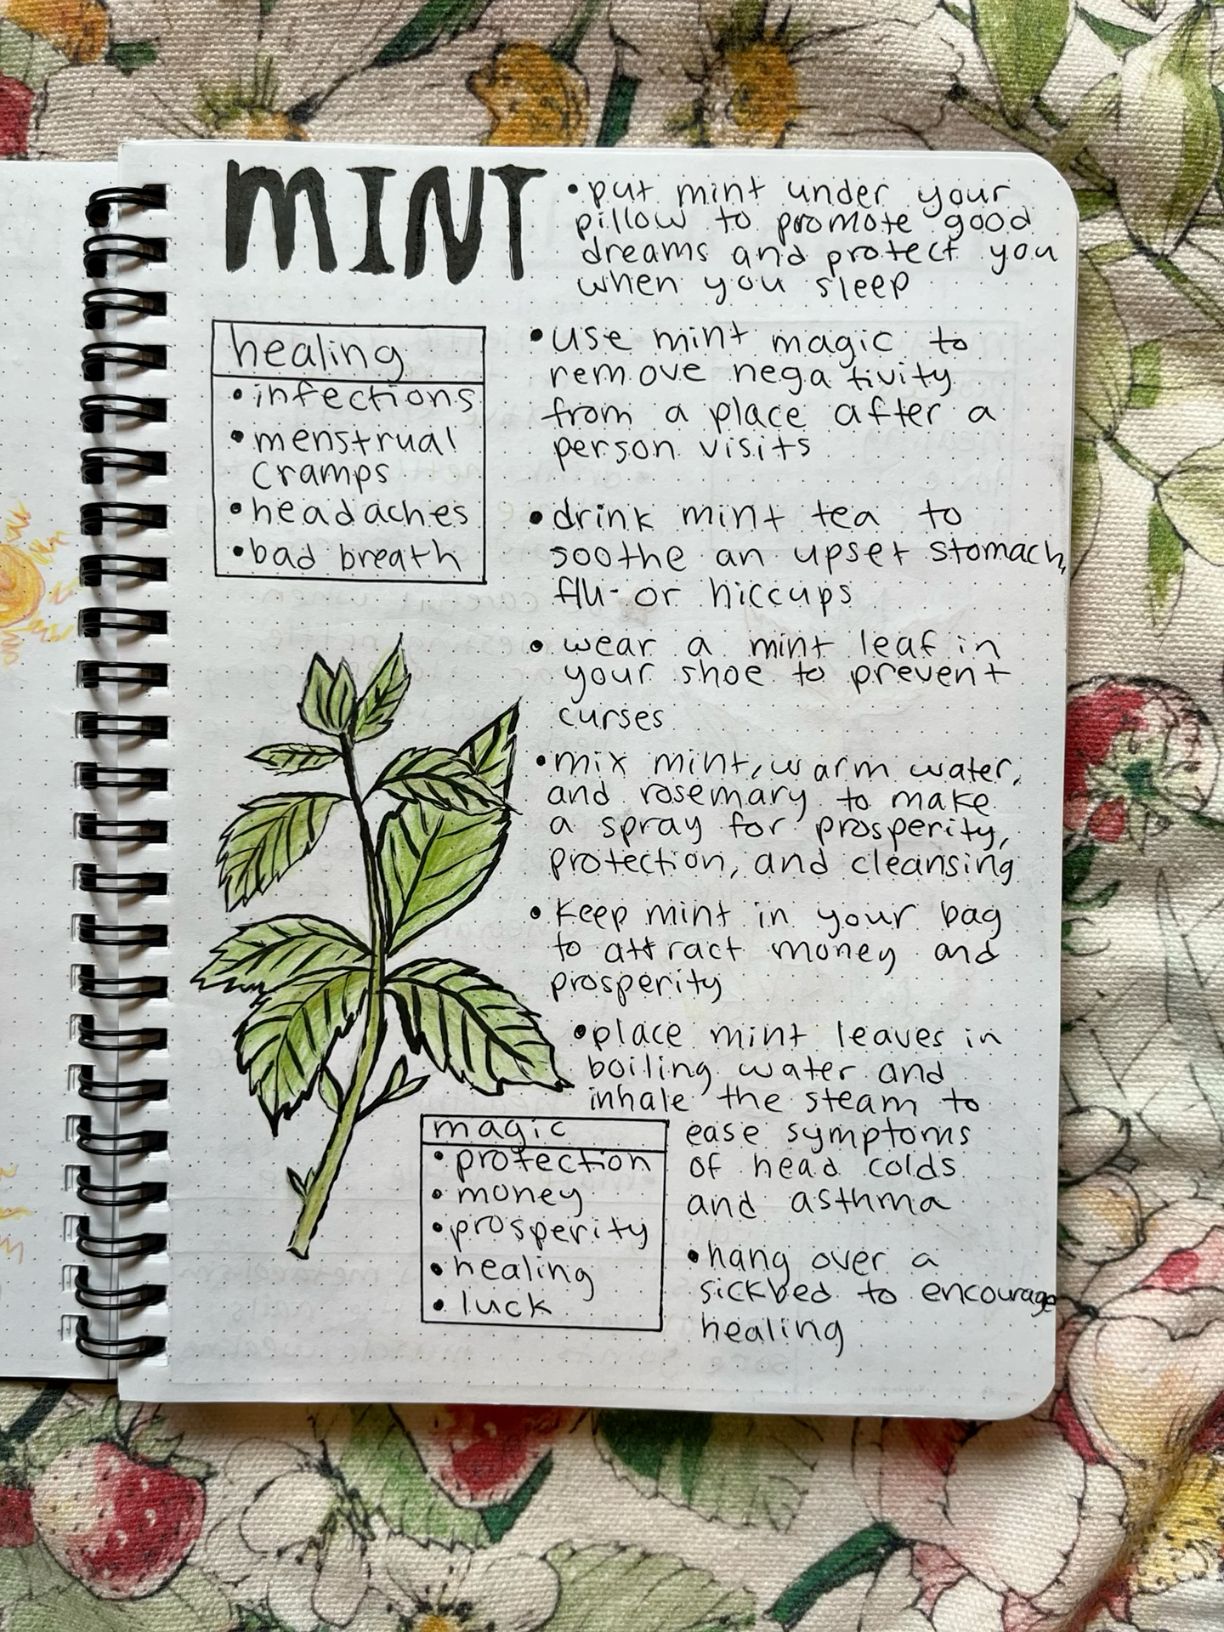 MINT
healing
• infections
• menstrual
cramps
• headaches
• bad breath
• put mint under your
pillow to promote good
dreams and protect you
when you sleep
• use mint magic to
remove negativity
from a place after a
person visits
• drink mint tea to
soothe an upset stomach,
flu or hiccups
• wear a mint leaf in
your shoe to prevent
curses
• mix mint, warm water,
and rosemary to make
a spray for prosperity,
protection, and cleansing
• keep mint in your bag
to attract money and
prosperity
• place mint leaves in
boiling water and
inhale the steam to
ease symptoms
of head colds
and asthma
• hang over a
sickbed to encourage
healing
magic
• protection
• money
• prosperity
• healing
• luck